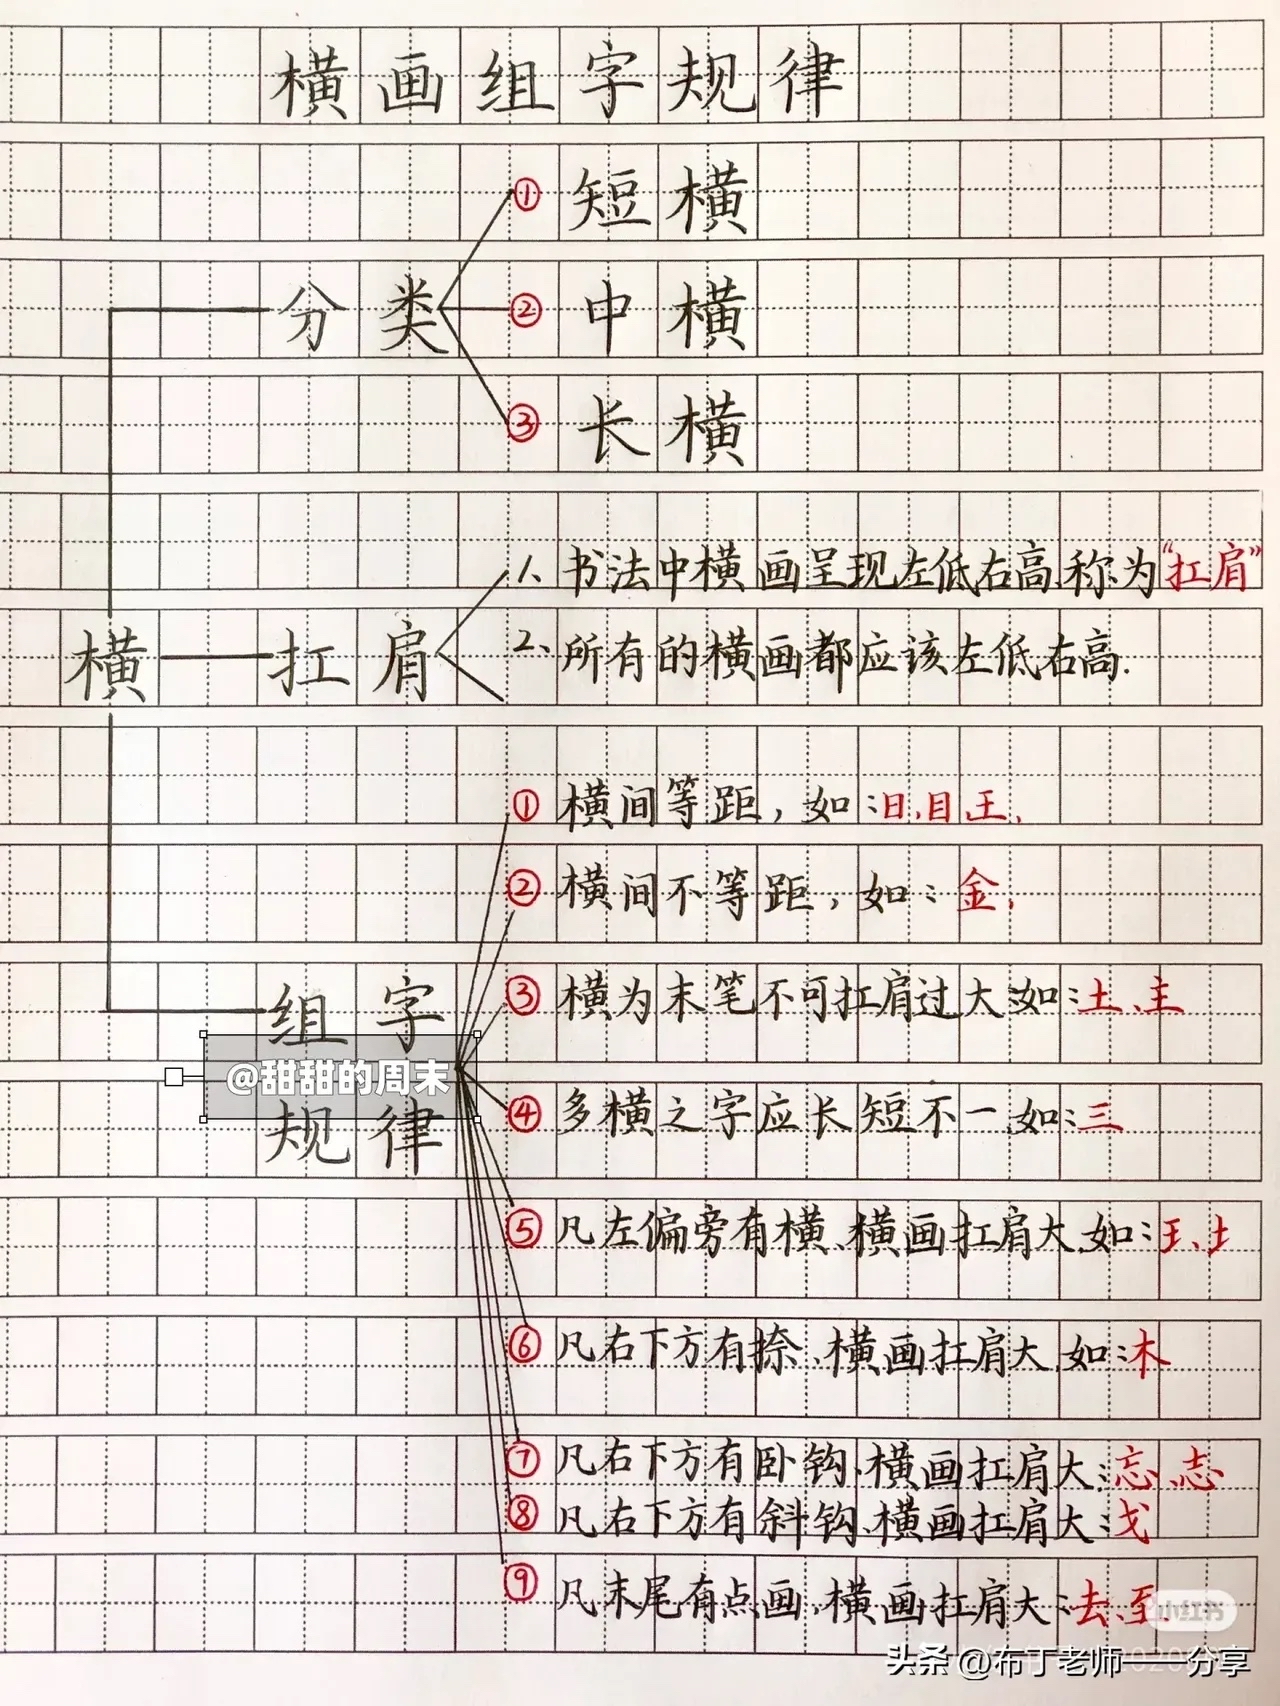 横画组字规律
① 短横
分类 ② 中横
③ 长横
1、书法中横画呈现左低右高、称为“扛肩”
横 扛肩
2、所有的横画都应该左低右高.
① 横间等距，如：日、目、王、
② 横间不等距，如：金、
③ 横为末笔不可扛肩过大如：土、主
组字
@甜甜的周末
④ 多横之字应长短不一、如：三
规律
⑤ 凡左偏旁有横、横画扛肩大、如：王、土
⑥ 凡右下方有捺、横画扛肩大、如：木
⑦ 凡右下方有卧钩、横画扛肩大：忘、志
⑧ 凡右下方有斜钩、横画扛肩大：戈
⑨ 凡末尾有点画、横画扛肩大：去、至、
小红书
头条 @布丁老师——分享